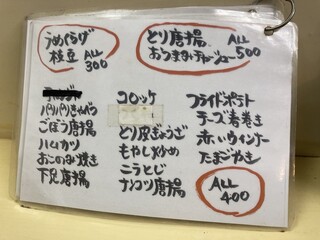 うめくらげ
枝豆 ALL 300
とり唐揚 ALL
おつまみチャーシュー 500
パリパリきゃべつ
ごぼう唐揚
ハムカツ
おこのみ焼き
下足唐揚
コロッケ
とり皮ぎょうざ
もやし炒め
ニラとじ
ナンコツ唐揚
フライドポテト
チーズ春巻き
赤いウインナー
たまごやき
ALL
400